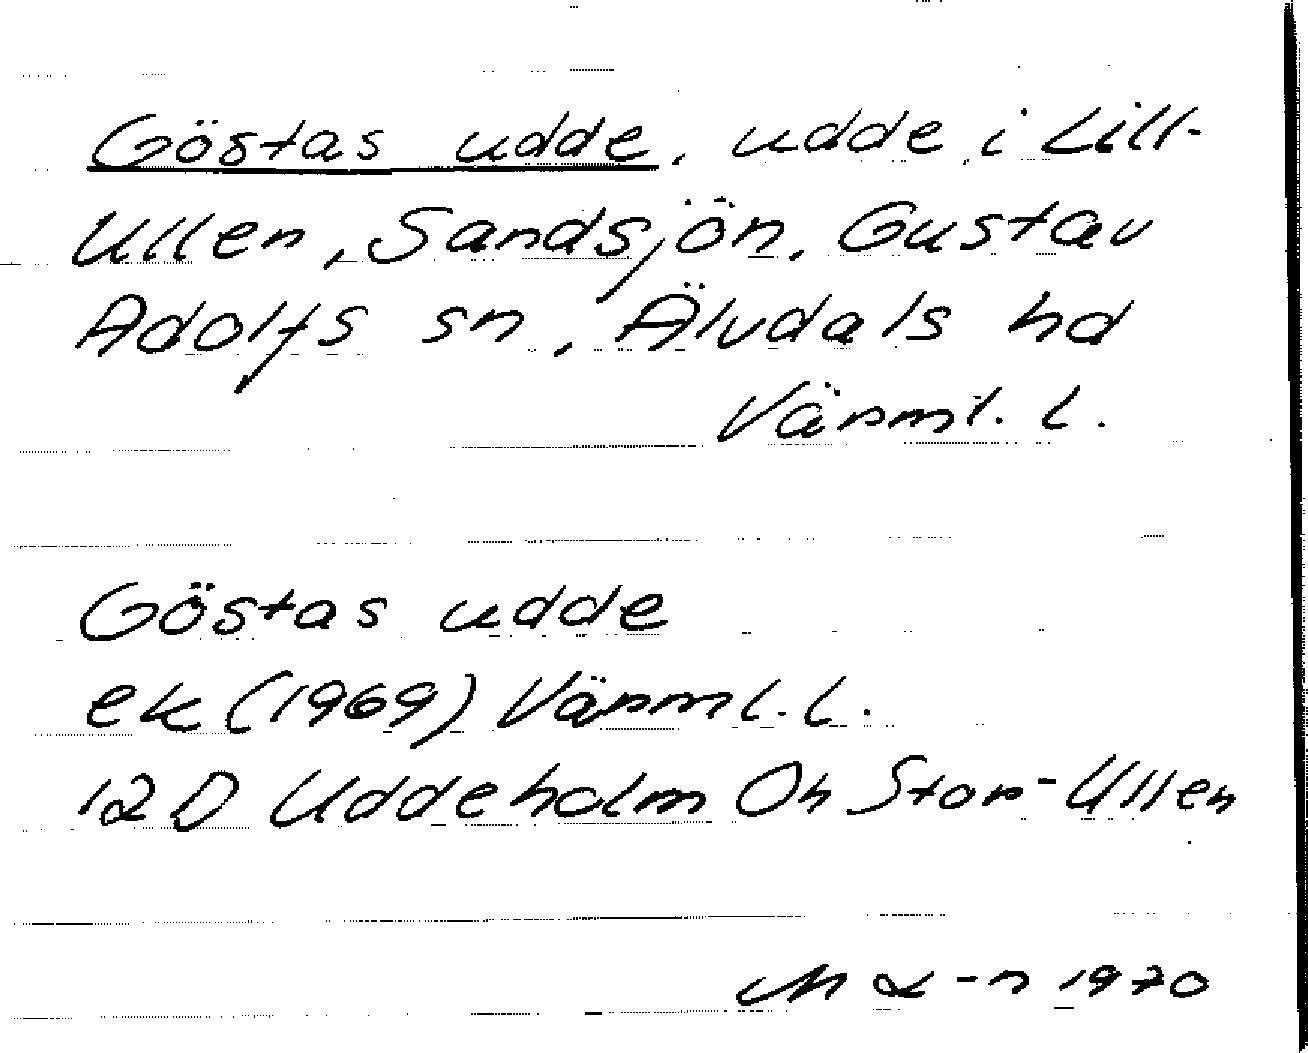 Göstas udde, udde i Lill-
Ullen, Sandsjön, Gustav
Adolfs sn, Älvdals hd
Värml. L.
Göstas udde
ek (1969) Värml. L.
12 D Uddeholm Oh Stor-Ullen
1970